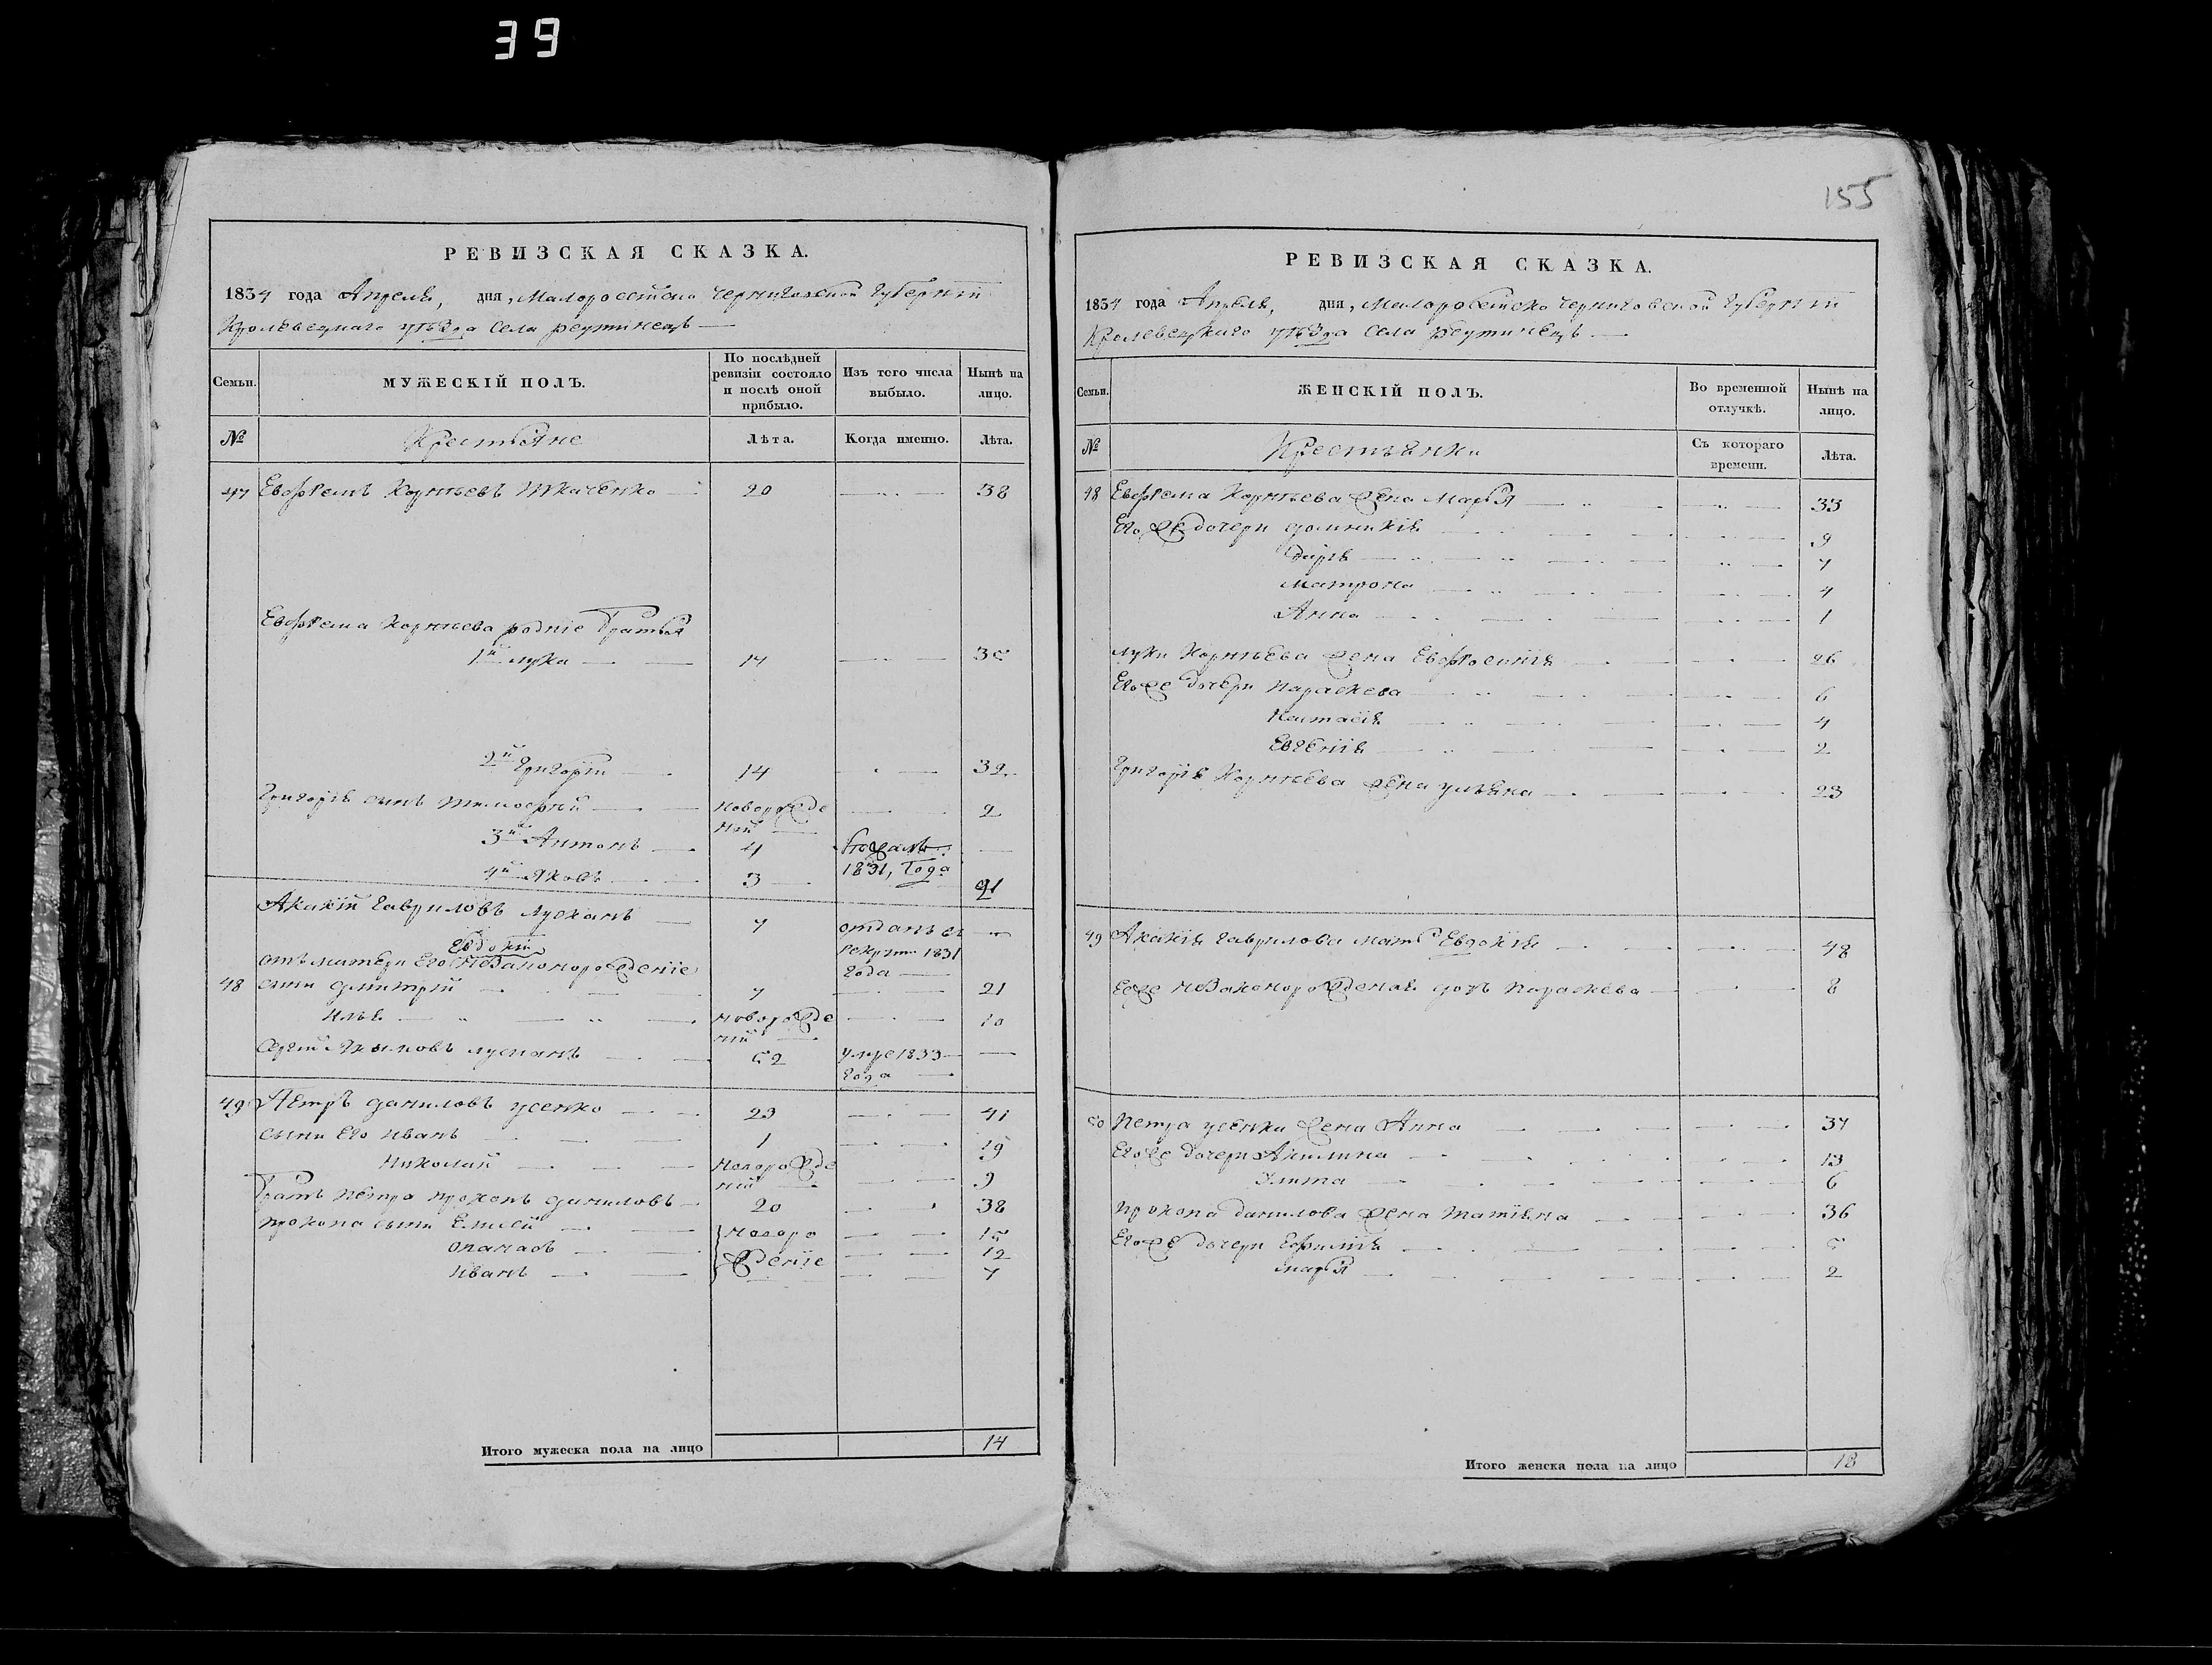 39
155
РЕВИЗСКАЯ СКАЗКА.
1834 года Апреля, дня, Малоросійско Черниговской Губерніи
Кролевецкаго уѣзда Села реутинецъ
Семьи. МУЖЕСКІЙ ПОЛЪ. По послѣдней ревизіи состояло и послѣ оной прибыло. Изъ того числа выбыло. Нынѣ на лицо.
№ Крестьяне Лѣта. Когда именно. Лѣта.
47 Евфремъ Корнѣевъ Ткаченко 20 38
Евфрема Корнѣева родніе братья
1й лука 14 32
2й Григорій 14 32
Григорія сынъ Тимофей новорожде ній 2
3й Антонъ 4 бежалъ
4й Яковъ 3 1831, Года 21
Акакій Гавриловъ 7 отданъ въ
Евдокіи рекрути 1831
отъ матери Его незаконорожденіе Года
48 сыни Дмитрій 7 21
Илья новорожде ній 10
Сергій 52 умре 1833
Года
49 Петръ Даниловъ усенко 23 41
сыни Его Иванъ 1 19
Николай новорожде ній 9
Братъ Петра прокопъ Даниловъ 20 38
прокопа сыни Елисей новоро 15
опанасъ жденіе 12
Иванъ 7
Итого мужеска пола на лицо 14
РЕВИЗСКАЯ СКАЗКА.
1834 года Апреля, дня, Малоросійско Черниговской Губерніи
Кролевецкаго уѣзда Села реутинецъ
Семьи. ЖЕНСКІЙ ПОЛЪ. Во временной отлучкѣ. Нынѣ на лицо.
№ Крестьянки Съ котораго времени. Лѣта.
48 Евфрема Корнѣева жена Марья 33
Его же дочери домникія 9
дарія 7
Матрона 4
Анна 1
луки Корнѣева жена Евфросинія 26
Его же дочери параскева 6
Настасія 4
Евгенія 2
Григорія Корнѣева жена ульяна 23
49 Акакія Гаврилова мать Евдокія 48
Ее же незаконорожденая дочь параскева 8
50 Петра усенки жена Анна 37
Его же дочери Акилина 13
Улита 6
прокопа данилова жена татіяна 36
Его же дочери Ефимія 5
марья 2
Итого женска пола на лицо 18